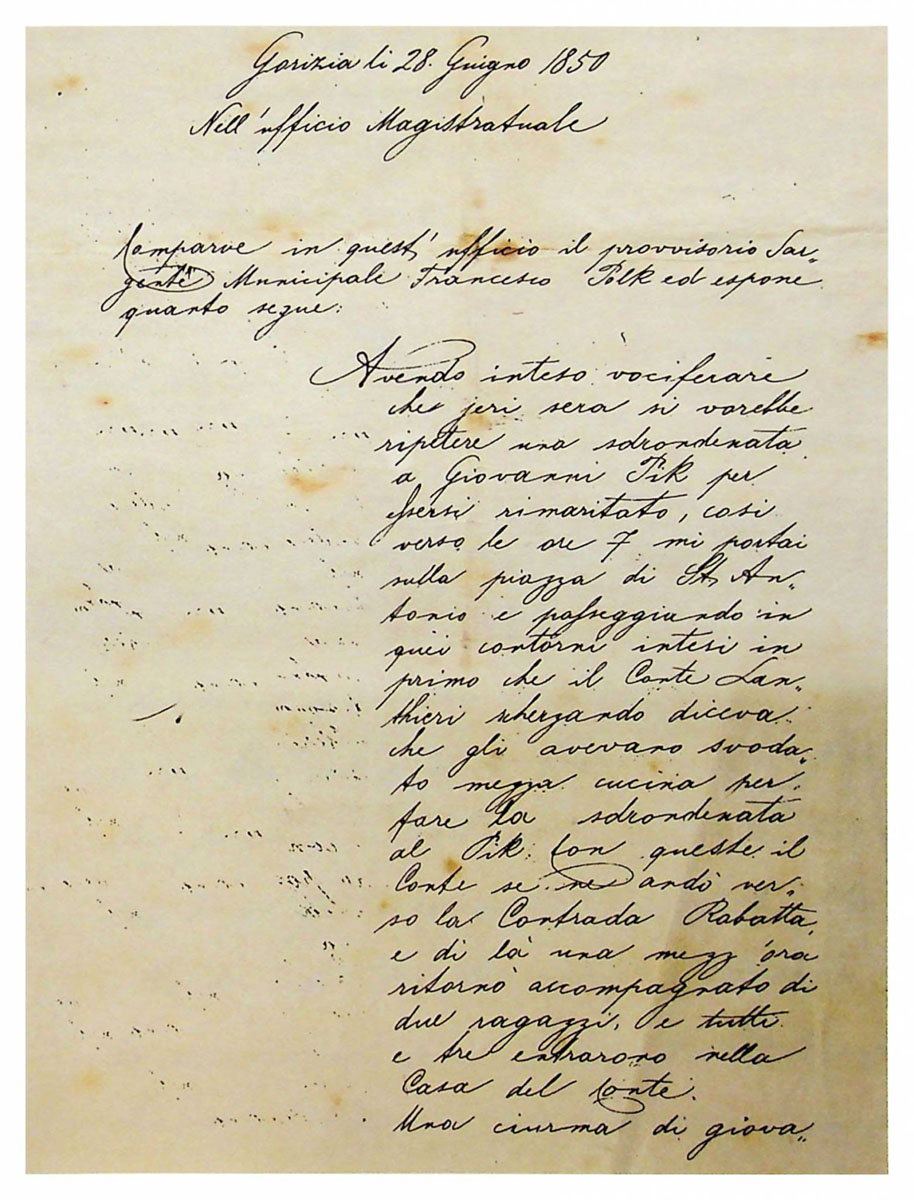 Gorizia li 28. Giugno 1850
Nell'ufficio Magistratuale
Comparve in quest'ufficio il provvisorio Sar„
gente Municipale Francesco Polk ed espone
quanto segue:
Avendo inteso vociferare
che jeri sera si varebbe
ripetere una sdrondenata
a Giovanni Pik per
essersi rimaritato, cosi
verso le ore 7 mi portai
sulla piazza di St. An„
tonio e passeggiando in
quei contorni intesi in
primo che il Conte Lan„
thieri scherzando diceva
che gli avevano svoda„
to mezza cucina per
fare la sdrondenata
al Pik. Con queste il
Conte se ne andò ver„
so la Contrada Rabatta,
e di là una mezz'ora
ritornò accompagnato di
due ragazzi, e tutti
e tre entrarono nella
Casa del Conte.
Una ciurma di giova„